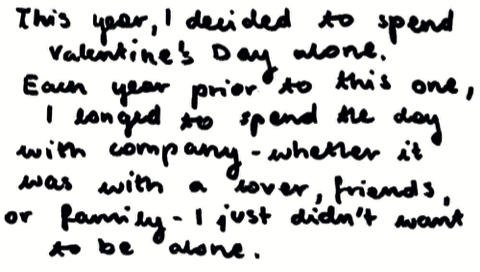 This year, I decided to spend
Valentine's Day alone.
Each year prior to this one,
I longed to spend the day
with company - whether it
was with a lover, friends,
or family - I just didn't want
to be alone.